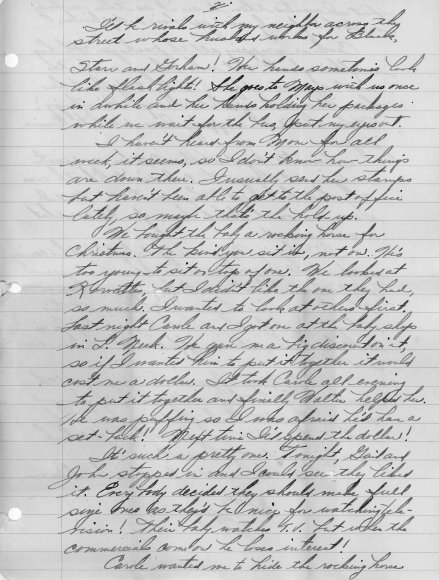 2.
I'd be rivals with my neighbor across the
street whose husband works for Black,
Starr and Gorham! Her hands sometimes look
like flashlights! She goes to Mass with us once
in awhile and her hands holding her packages
while we wait for the bus, put my eyes out.
I haven't heard from Mom for all
week, it seems, so I don't know how things
are down there. I usually send her stamps
but haven't been able to get to the post office
lately, so maybe that's the hold up.
We bought the baby a rocking horse for
Christmas. The kind you sit in, not on. He's
too young to sit on top of one. We looked at
but I didn't like the one they had,
so much. I wanted to look at others first.
Last night Carole and I got one at the baby shop
in L. Neck. He gave me a big discount on it,
so if I wanted him to put it together it would
cost me a dollar. It took Carole all evening
to put it together and finally Walter helped her.
He was puffing so I was afraid he'd have a
set-back! Next time I'd spend the dollar!
It's such a pretty one. Tonight and
John stopped in and I could see they liked
it. Everybody decided they should make full
size ones as they'd be nice for watching tele-
vision! Their baby watches T.V. but when the
commercials come on he loses interest!
Carole wanted me to hide the rocking horse